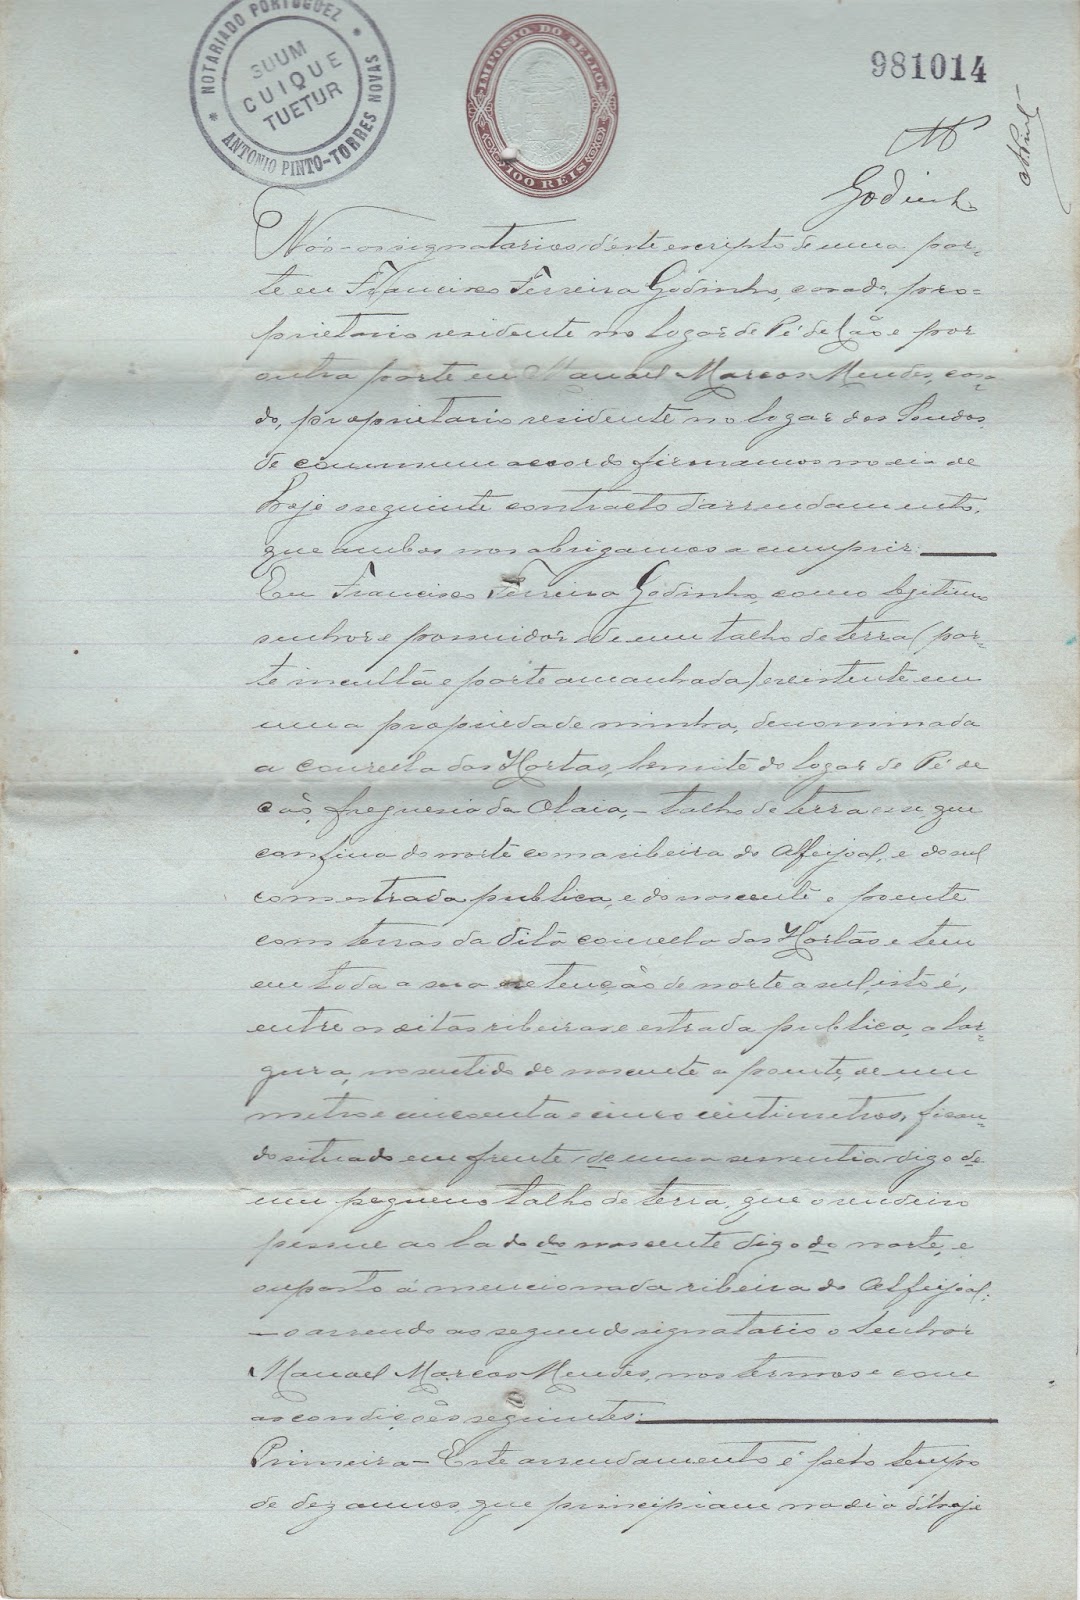 * NOTARIADO PORTUGUEZ *
ANTONIO PINTO-TORRES NOVAS
SUUM
CUIQUE
TUETUR
IMPOSTO DO SELLO
100 REIS
981014
Godinho
Nós os signatarios d'este escripto de uma par-
te eu Francisco Ferreira Godinho, casado, pro-
prietario residente no logar de Pé de Cão e por
outra parte eu Manoel Marcos Mendes, casa-
do, proprietario residente no logar dos Soudos,
de commum accordo firmamos no dia de
hoje o seguinte contracto d'arrendamento,
que ambos nos obrigamos a cumprir:
Eu Francisco Ferreira Godinho, como legitimo
senhor e possuidor de um talho de terra (par-
te inculta e parte amanhada) existente em
uma propriedade minha, denominada
a courella das Hortas, limite do logar de Pé de
cão, freguesia da Olaia, - talho de terra esse que
confina do norte com a ribeira do Alfeijoal, e do sul
com estrada publica, e do nascente e poente
com terras da dita courella das Hortas e tem
em toda a sua extenção de norte a sul, isto é,
entre as ditas ribeiras e estrada publica, a lar-
gura, no sentido de nascente a poente, de um
metro e cincoenta e cinco centimetros, fican-
do situado em frente de uma serventia digo de
um pequeno talho de terra, que o rendeiro
possue ao lado do nascente digo do norte, e
opposto á mencionada ribeira do Alfeijoal:
- o arrendo ao segundo signatario o Senhor
Manoel Marcos Mendes, nos termos e com
as condições seguintes:
Primeira - Este arrendamento é pelo tempo
de dez annos, que principiam no dia d'hoje